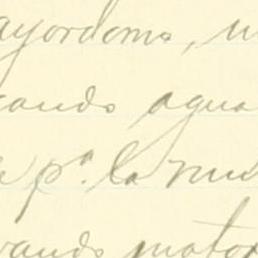 ayordomo, u
cando agua
e p.ª la mu
vando motor